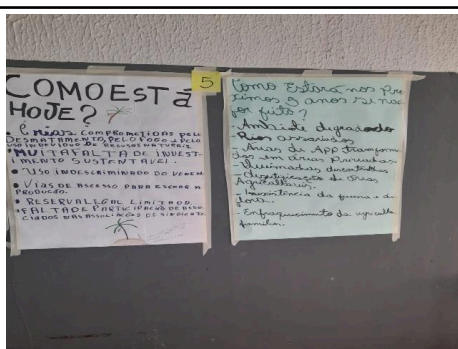 COMO ESTÁ
HOJE?
COMPROMETIDAS PELO
DESMATAMENTO, PELO FOGO E PELO
USO INDEVIDO DE RECURSOS NATURAIS
MUITA FALTA DE INVEST-
IMENTO SUSTENTAVEL.
USO INDISCRIMINADO DO VENEN
VIAS DE ACESSO PARA ESCOAR A
PRODUÇÃO.
RESERVA LEGAL LIMITADA.
FALTA DE PARTICIPAÇÃO DE ASSO
CIADOS NAS ASSOCIAÇÃO DE SINDICATO.
5
Como Estará nos Pro
ximos 5 anos si nao
for feito?
- Ambiente degradado
Rios assoriados
- Áreas de APP transform
das em áreas Privadas
- Queimadas
- de Areas
Agricultaveis.
- Inexistência da fauna e da
flora.
- Enfraquecimento da agricultu
familiar.